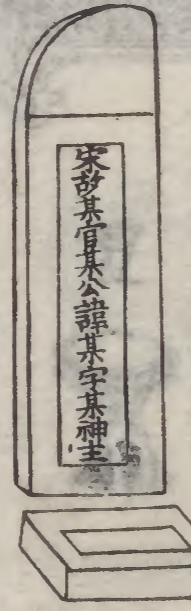 宋故某官某公諱某字某神主